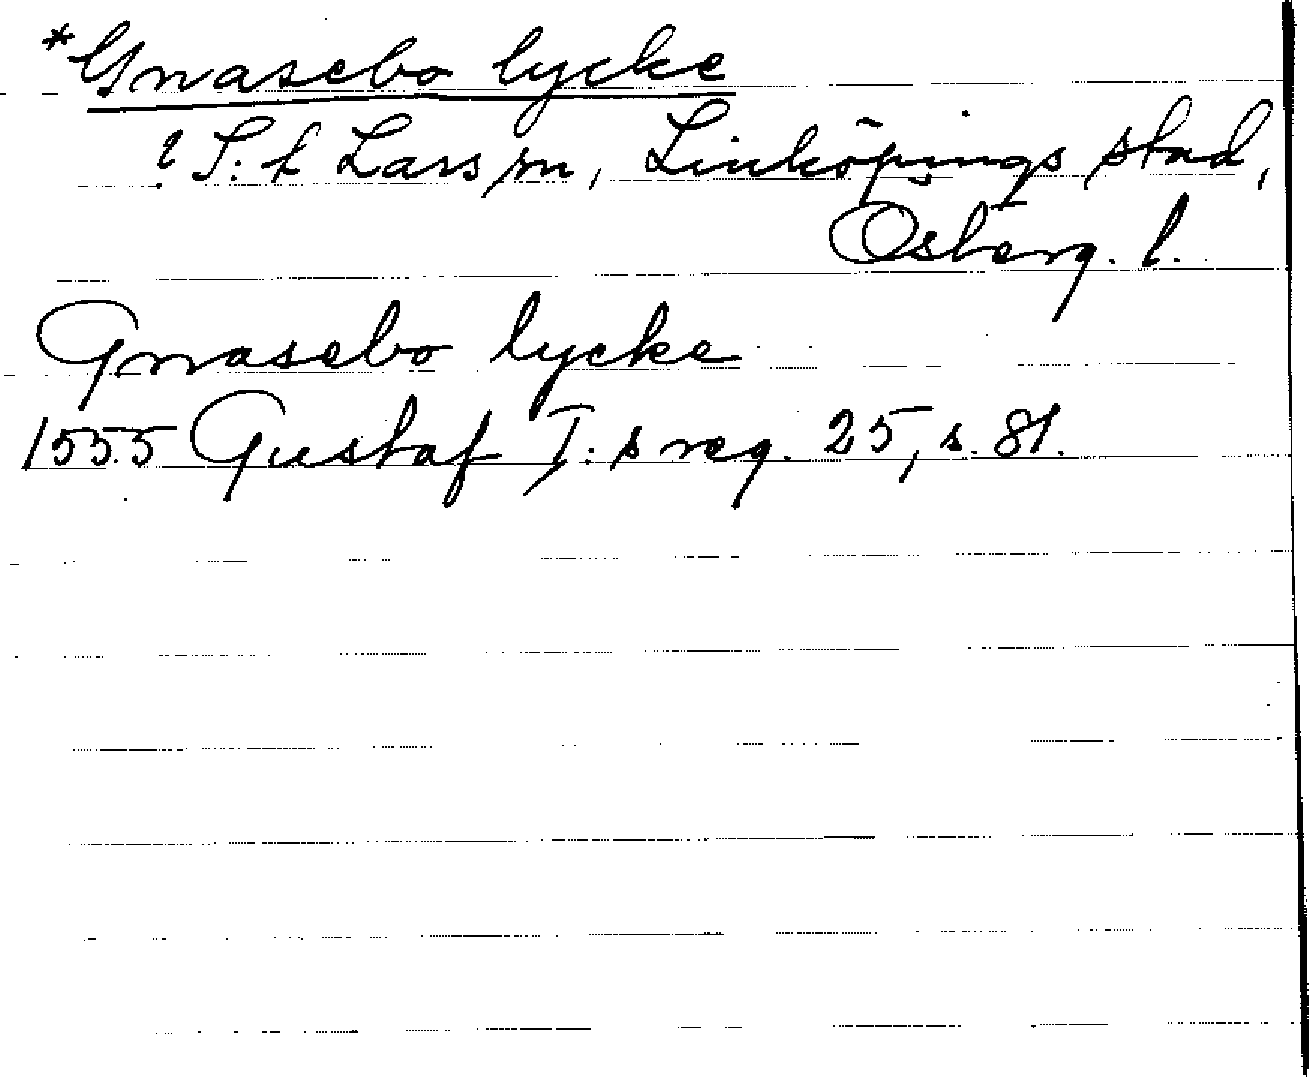 *Gnasebo lycke
? S:t Lars sn, Linköpings stad,
Österg. l.
Gnasebo lycke
1555 Gustaf I:s reg. 25, s. 81.